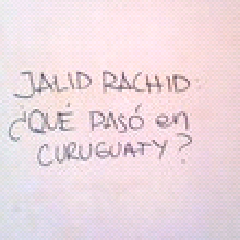 JALID RACHID:
¿QUÉ PASÓ en
CURUGUATY?